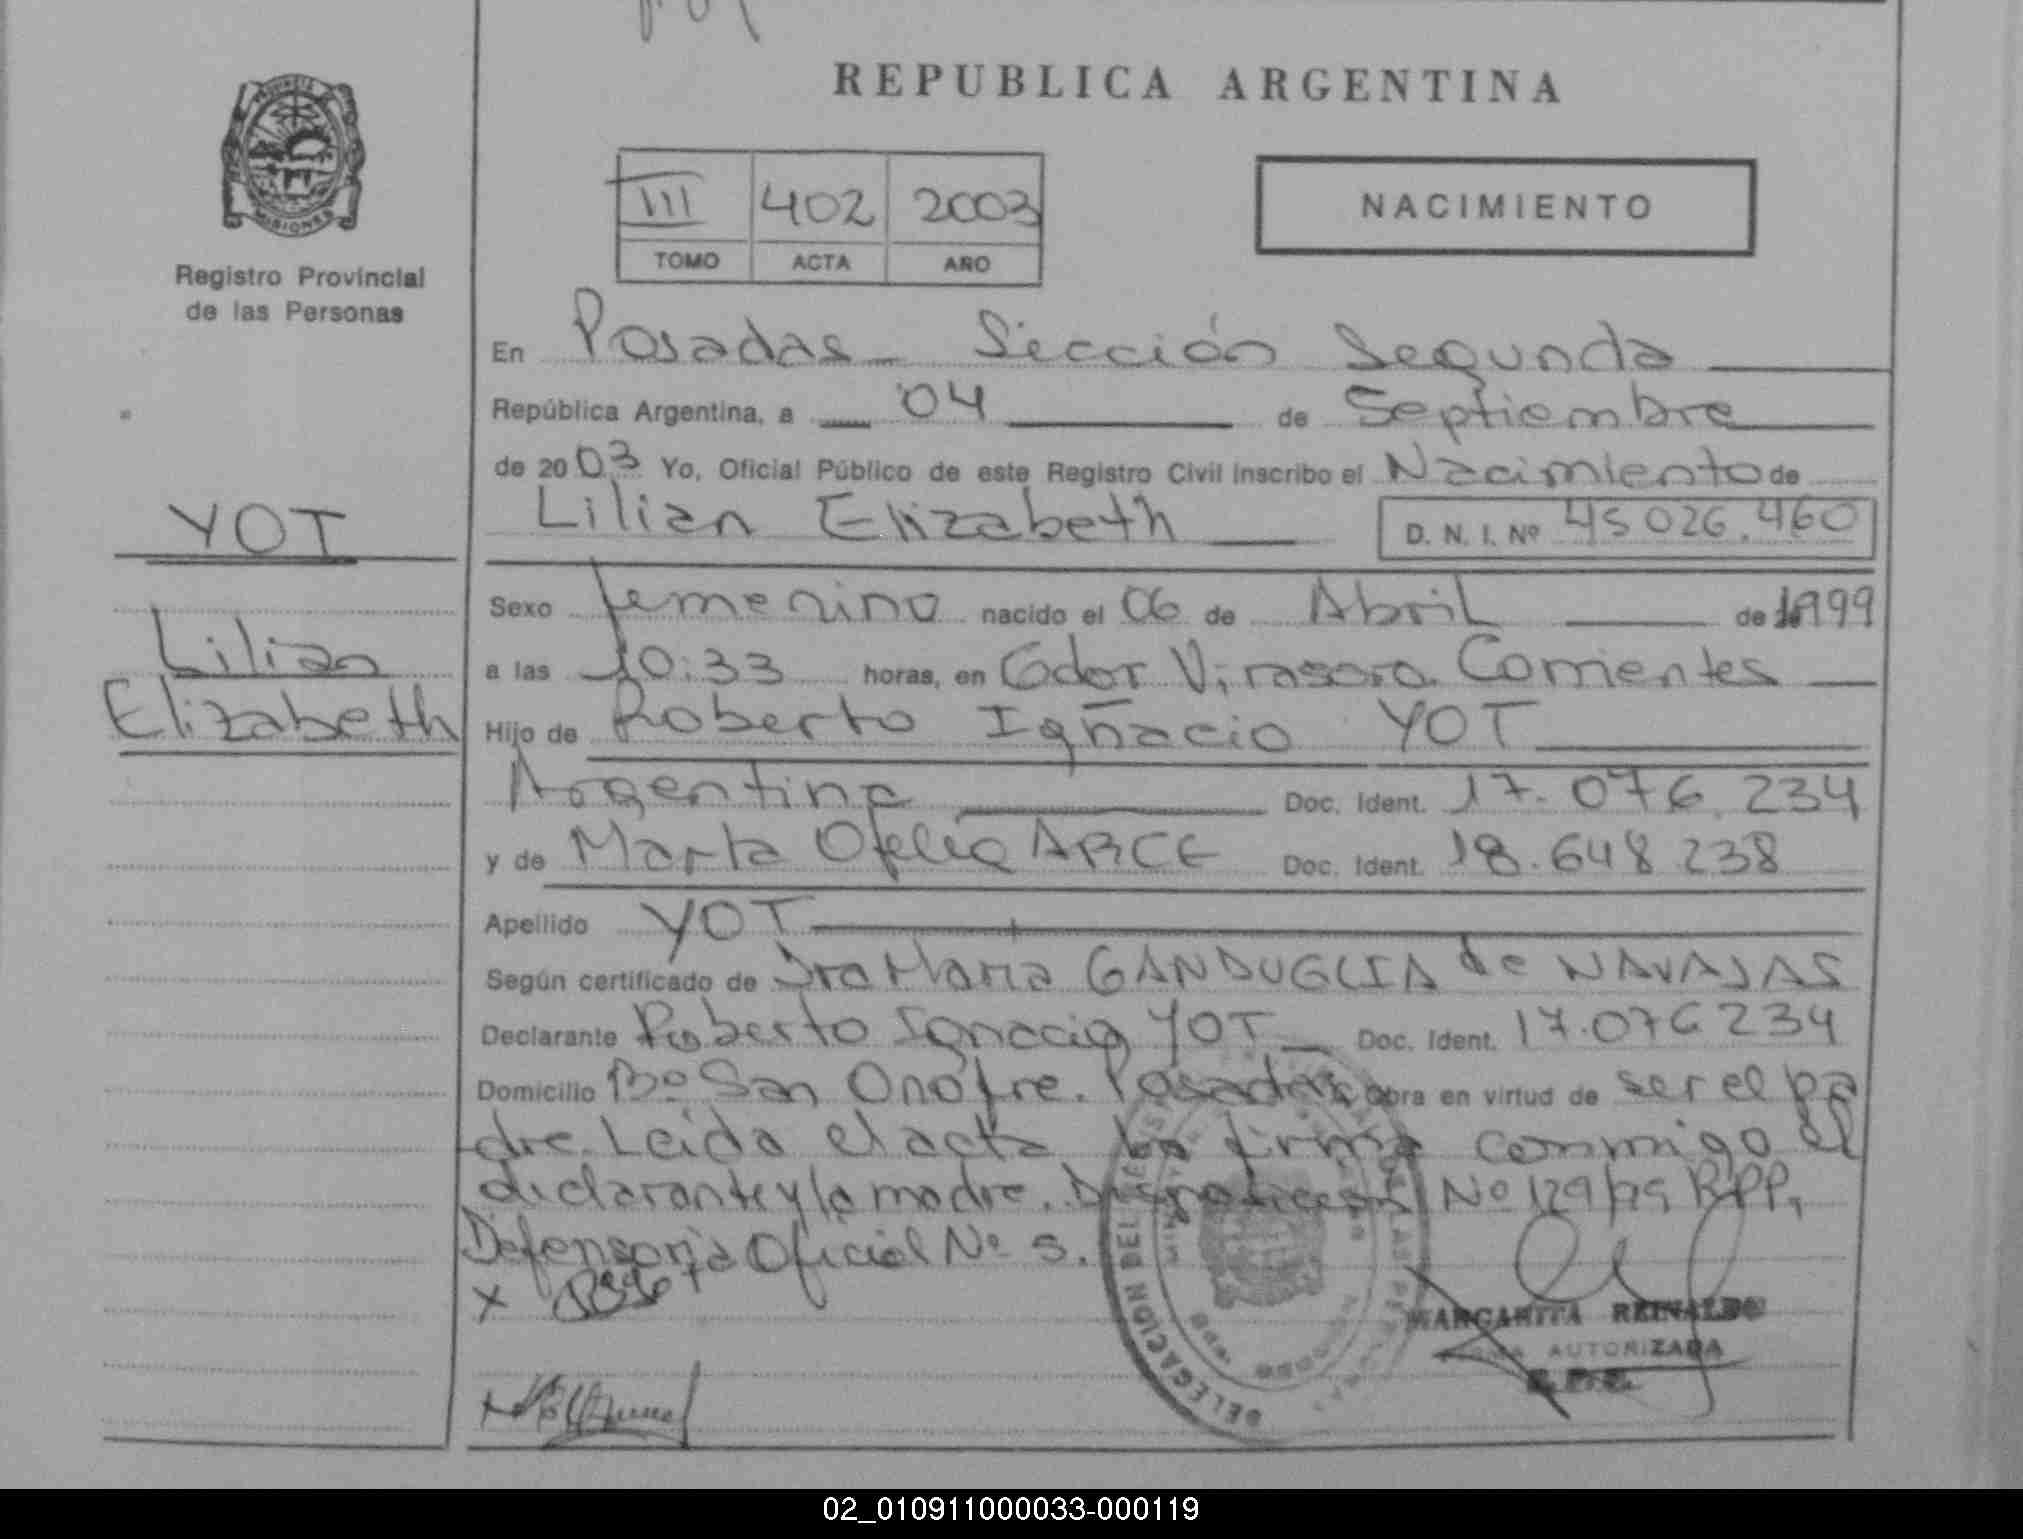 REPUBLICA ARGENTINA
MISIONES
Registro Provincial
de las Personas
III 402 2003
TOMO ACTA AÑO
NACIMIENTO
En Posadas Sección Segunda
República Argentina, a 04 de Septiembre
de 2003 Yo, Oficial Público de este Registro Civil inscribo el Nacimiento de
Lilian Elizabeth D. N. I. Nº 45 026.460
YOT
Lilian
Elizabeth
Sexo femenino nacido el 06 de Abril de 1999
a las 10:33 horas, en Gdor Virasoro Corrientes
Hijo de Roberto Ignacio YOT
Argentina Doc. Ident. 17.076.234
y de Marta Ofelia ARCE Doc. Ident. 18.648.238
Apellido YOT
Según certificado de Dra Maria GANDUGLIA de NAVAJAS
Declarante Roberto Ignacio YOT Doc. Ident. 17.076234
Domicilio Bº San Onofre. Posadas Obra en virtud de ser el pa
dre. Leida el acta la firma conmigo el
declarante y la madre. Nº 129/99 RPP,
Defensoria Oficial Nº 5.
X
DELEGACION DEL
MARGARITA REINALDO
FIRMA AUTORIZADA
02_010911000033-000119